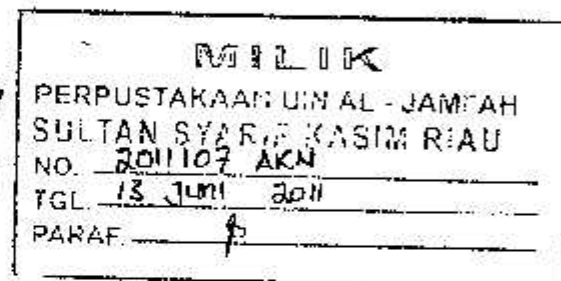 MILIK
PERPUSTAKAAN UIN AL - JAMI'AH
SULTAN SYARIF KASIM RIAU
NO. 2011107 AKN
TGL. 13 JUNI 2011
PARAF.